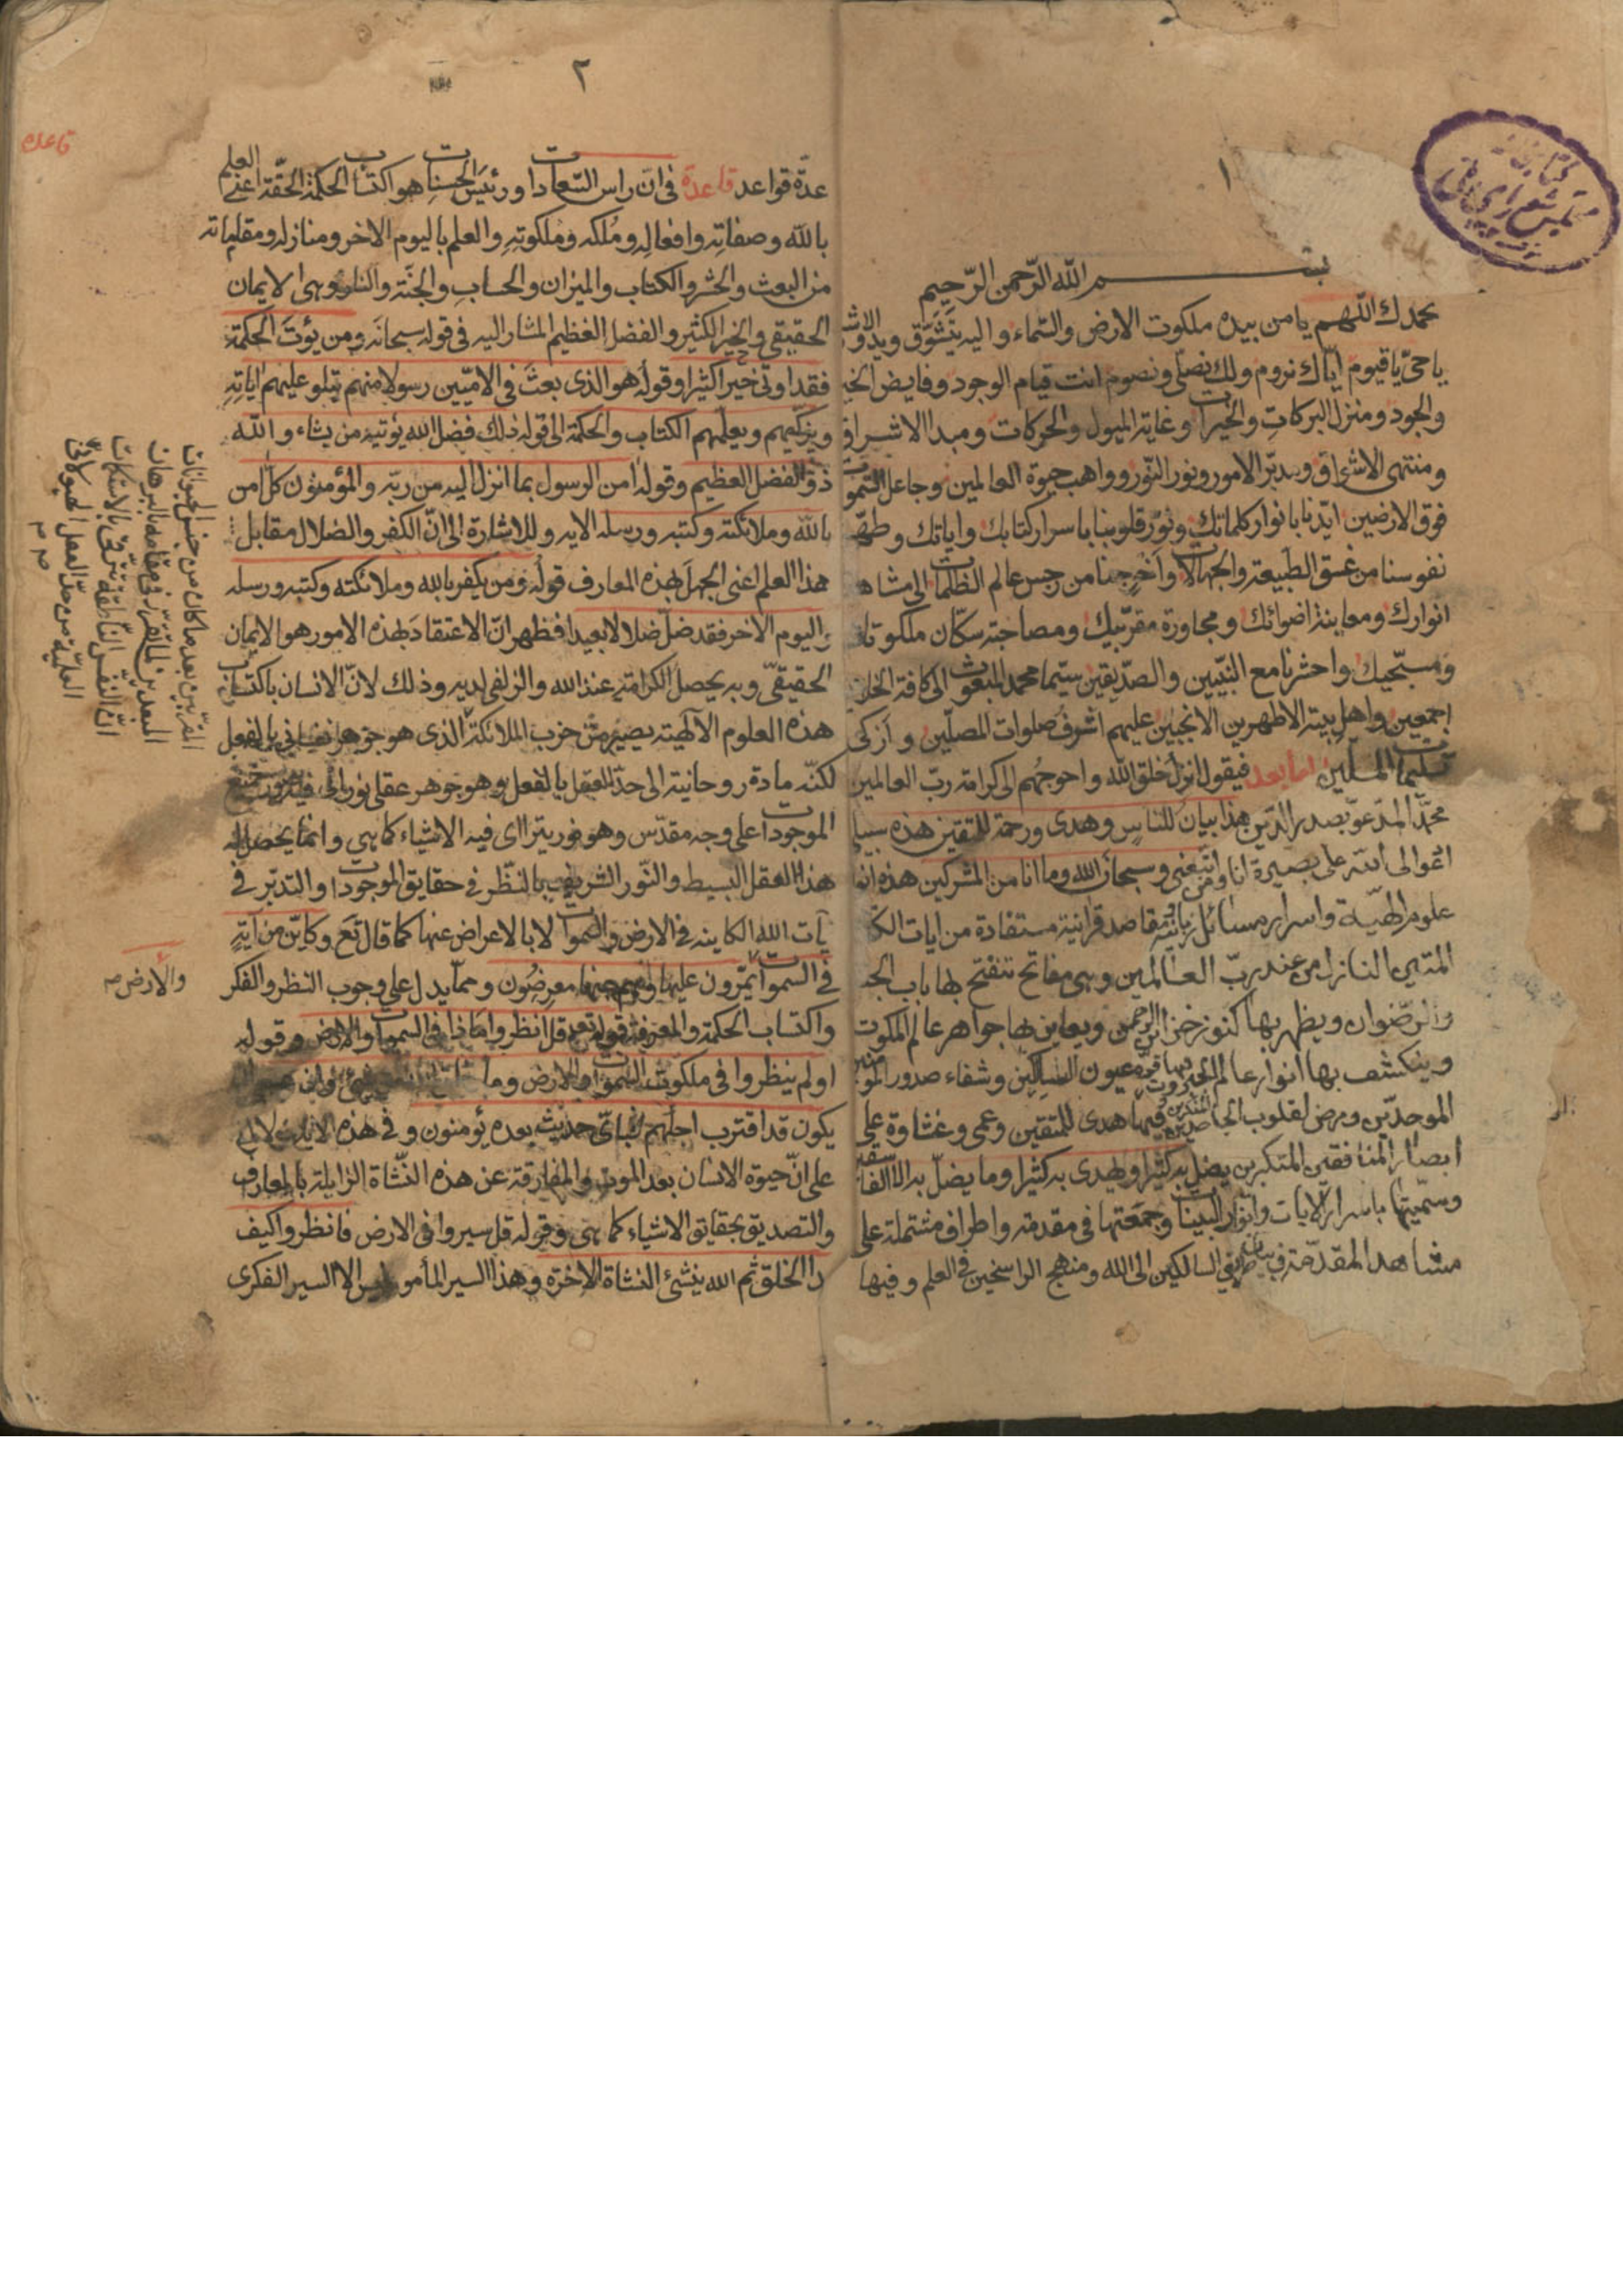 ١
بسم الله الرّحمن الرّحيم
نحمدك اللّهم يا من بيده ملكوت الارض والسّماء واليه يتشوّق ويدور الاش
يا حىّ يا قيوم ايّاك نروم ولك نصلى ونصوم انت قيام الوجود وفايض الخي
والجود ومنزل البركات والخيرات وغاية الميول والحركات ومبدا الاشراق
ومنتهى الاشواق ومدبّر الامور ونور النّور وواهب حيوة العالمين وجاعل السّموات
فوق الارضين ايّدنا بانوار كلماتك ونوّر قلوبنا باسرار كتابك واياتك وطهّر
نفوسنا من غسق الطبيعة والجهالات واخرجنا من رجس عالم الظلمات الى مشاه
انوارك ومعاينة اضوائك ومجاورة مقرّبيك ومصاحبة سكّان ملكوتك
ومسبّحيك واحشرنا مع النبّيين والصدّيقين سيّما محمد المبعوث الى كافة الخلق
اجمعين واهل بيته الاطهرين الانجبين عليهم اشرف صلوات المصلّين وازكى
تسليمات المسلّمين امّا بعد فيقول انزل خلق الله واحوجهم الى كرامة ربّ العالمين
محمّد المدعوّ بصدر الدّين هذا بيان للناس وهدى ورحمة للمتقين هذه سبيلى
ادعوا الى الله على بصيرة انا ومن اتّبعنى وسبحان الله وما انا من المشركين هذه انما
علوم الهيّة واسرار مسائل ربانية ومقاصد قرانية مستفادة من ايات الكتاب
المتين النازل من عند ربّ العالمين وهى مفاتح تنفتح بها باب الجنة
والرّضوان ويظهر بها كنوز خزائن الرحمن ويعاين بها جواهر عالم الملكوت
وينكشف بها انوار عالم الجبروت فيها قرة عيون السالكين وشفاء صدور المؤمنين
الموحدّين ومرض لقلوب الجاحدين فيها هدى للمتقين وعمى وغشاوة على
ابصار المنافقين المتكبرين يضل به كثيرا ويهدى به كثيرا وما يضلّ به الا الفاسقين
وسمّيتها باسرار الايات وانوار البينات وجمعتها فى مقدمة واطراف مشتملة على
مشاهد المقدّمة فى بيان طريق السالكين الى الله ومنهج الراسخين فى العلم وفيها
٢
عدّة قواعد قاعدة فى انّ راس السّعادات ورئيس الحسنات هو اكتساب الحكمة الحقّة اعنى العلم
بالله وصفاته وافعاله وملكه وملكوته والعلم باليوم الاخر ومنازله ومقاماته
من البعث والحشر والكتاب والميزان والحساب والجنّة والنار وهى الايمان
الحقيقى والخير الكثير والفضل العظيم المشار اليه فى قوله سبحانه ومن يؤت الحكمة
فقد اوتى خيرا كثيرا وقوله هو الذى بعث فى الامّيين رسولا منهم يتلو عليهم اياته
ويزكّيهم ويعلّمهم الكتاب والحكمة الى قوله ذلك فضل الله يؤتيه من يشاء والله
ذو الفضل العظيم وقوله امن الرسول بما انزل اليه من ربّه والمؤمنون كلّ امن
بالله وملائكته وكتبه ورسله الايه وللاشارة الى انّ الكفر والضلال مقابل
هذا العلم اعنى الجهل بهذه المعارف قوله ومن يكفر بالله وملائكته وكتبه ورسله
واليوم الاخر فقد ضلّ ضلالا بعيدا فظهر انّ الاعتقاد بهذه الامور هو الايمان
الحقيقىّ وبه يحصل الكرامة عند الله والزلفى لديه وذلك لانّ الانسان باكتساب
هذه العلوم الالهيّة يصير من حزب الملائكة الذى هو جوهر نفسانى بالفعل
لكنّه مادة روحانية الى حدّ العقل بالفعل وهو جوهر عقلى نورانى فيه صور جميع
الموجودات على وجه مقدّس وهو نور يترااى فيه الاشياء كما هى وانما يحصل له
هذا العقل البسيط والنّور الشريف بالنّظر فى حقايق الموجودات والتدبّر فى
آيات الله الكاينه فى الارض والسموات لا بالاعراض عنها كما قال تع وكايّن من آية
فى السموات يمرّون عليها وهم عنها معرضون وممّا يدل على وجوب النظر والفكر
واكتساب الحكمة والمعرفة قوله تعم قل انظروا ماذا فى السموات والارض وقوله
اولم ينظروا فى ملكوت السموات والارض وما خلق الله من شئ وان عسى ان
يكون قد اقترب اجلهم فباىّ حديث بعده يؤمنون وفى هذه الاية دلالة
على انّ حيوة الانسان بعد الموت والمفارقة عن هذه النّشاة الزايلة بالمعارف
والتصديق بحقايق الاشياء كما هى وقوله قل سيروا فى الارض فانظروا كيف
بدا الخلق ثم الله ينشئ النشاة الاخرة وهذا السير المأمور ليس الا السير الفكرى
قاعده
والأرض صح